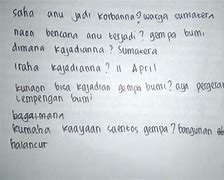 saha anu jadi korbanna? warga sumatera
naon bencana anu terjadi? gempa bumi
dimana kajadianna? Sumatera
iraha kajadianna? 11 April
kunaon bisa kajadian gempa bumi? aya pergeseran
lempengan bumi
bagaimana
kumaha kaayaan saentos gempa? bangunan
halancur